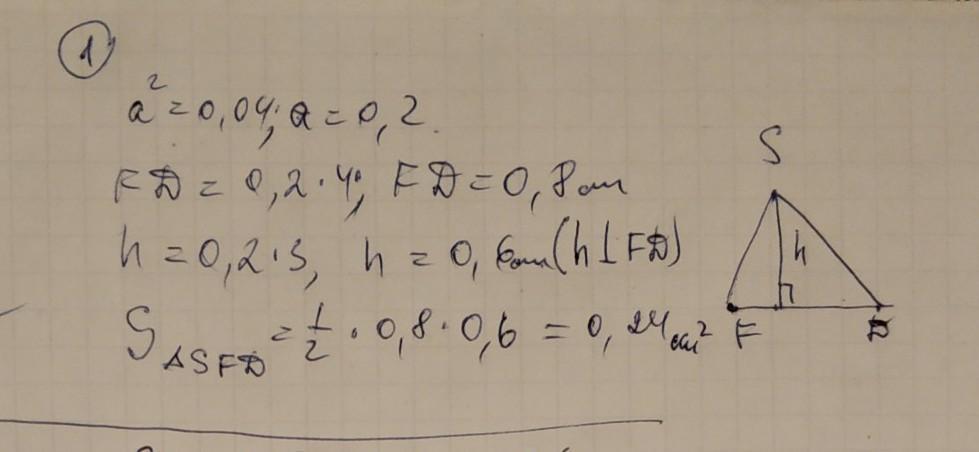 1
a² = 0,04; a = 0,2.
FD = 0,2 · 4; FD = 0,8 см
h = 0,2 · 3, h = 0,6 см (h ⊥ FD)
S △SFD = 1/2 · 0,8 · 0,6 = 0,24 см²
S
h
F D